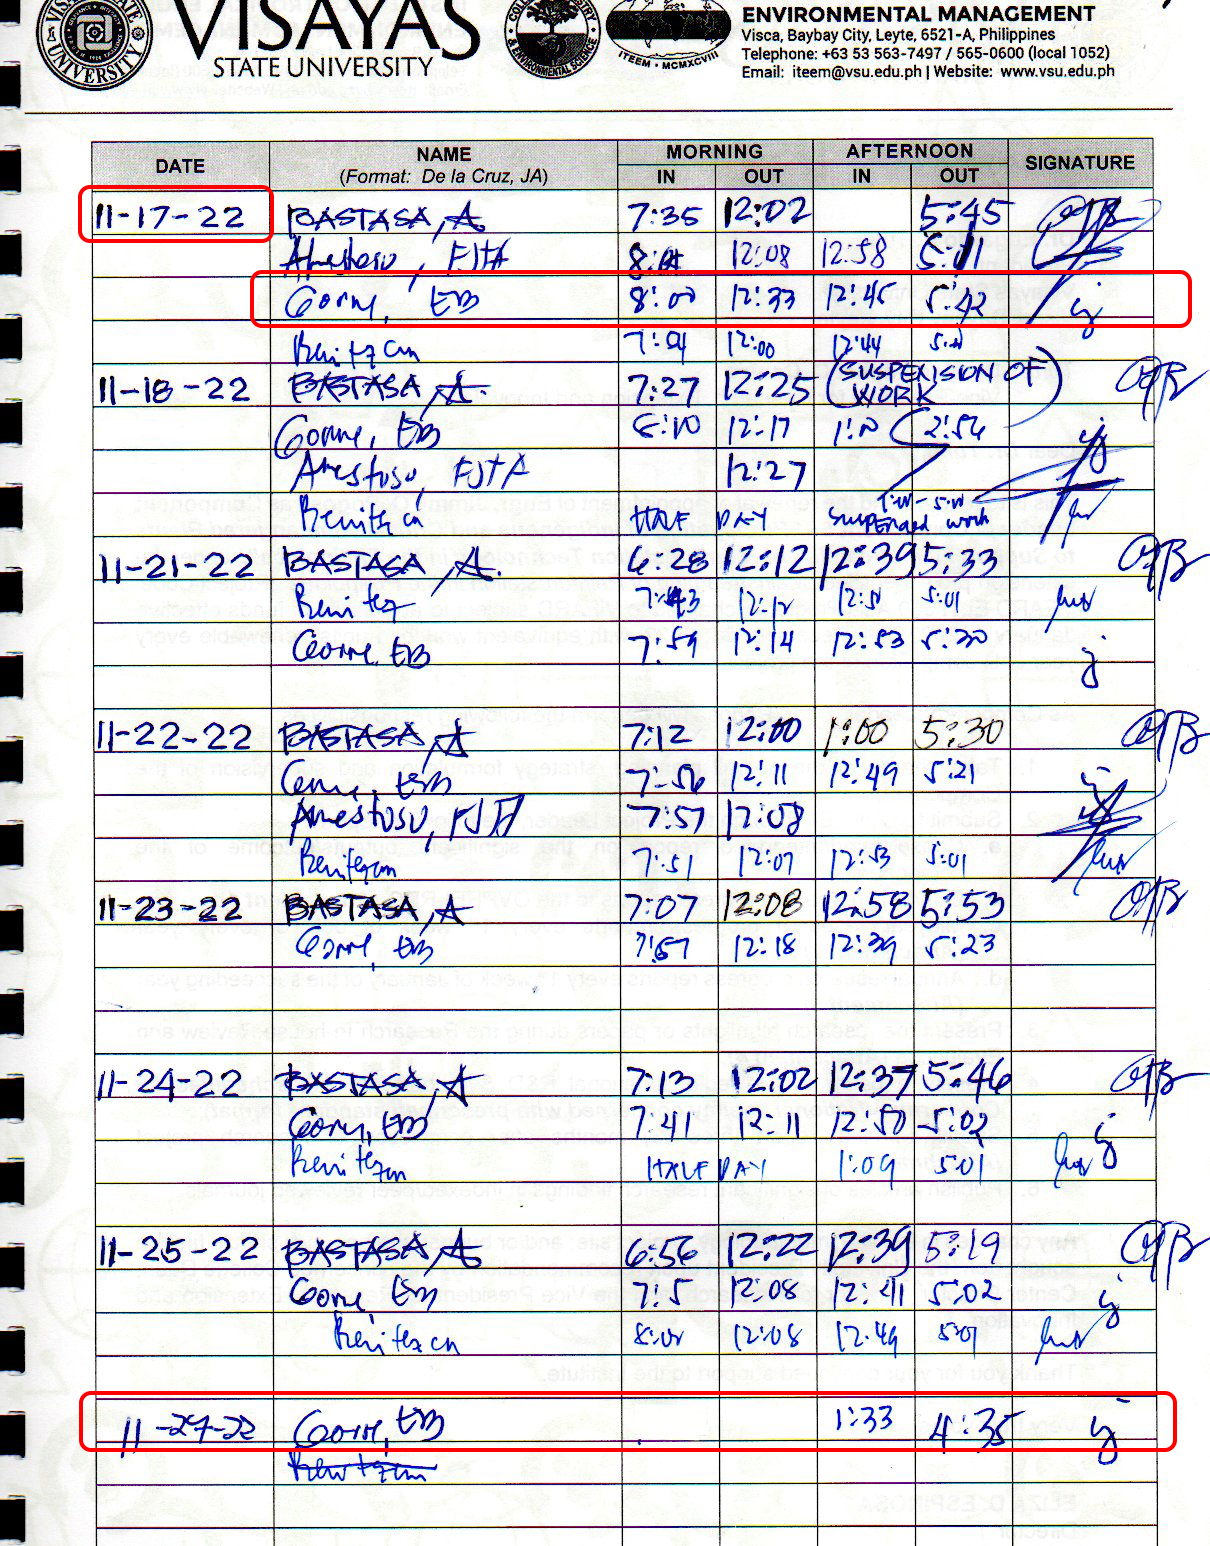 VISAYAS
STATE UNIVERSITY
ENVIRONMENTAL MANAGEMENT
Visca, Baybay City, Leyte, 6521-A, Philippines
Telephone: +63 53 563-7497 / 565-0600 (local 1052)
Email: iteem@vsu.edu.ph | Website: www.vsu.edu.ph
ITEEM • MCMXCVIII
DATE NAME MORNING AFTERNOON SIGNATURE
(Format: De la Cruz, JA) IN OUT IN OUT
11-17-22 BASTASA, A. 7:35 12:02 5:45
Anestoso, FJTA 12:08 12:58 5:11
Gorne, EB 8:00 12:33 12:45 5:42
Renitezcn 12:00 12:44
11-18-22 BASTASA, A. 7:27 12:25 (SUSPENSION OF WORK)
Gorne, EB 12:17 2:56
Anestoso, FJTA 12:27
Renitez cn HALF DAY suspended work
11-21-22 BASTASA, A. 6:28 12:12 12:39 5:33
Renitez 7:43 12:12 5:01
Gorne, EB 7:59 12:14 12:53 5:30
11-22-22 BASTASA, A 7:12 12:00 1:00 5:30
Gorne, EB 7:56 12:11 12:49 5:21
Anestoso, FJTA 7:57 12:08
Renitezcn 7:51 12:07 12:53 5:01
11-23-22 BASTASA, A 7:07 12:08 12:58 5:53
Gorne, EB 7:57 12:18 12:39 5:23
11-24-22 BASTASA, A 7:13 12:02 12:37 5:46
Gorne, EB 7:41 12:11 12:50 5:02
Renitezcn HALF DAY 1:09 5:01
11-25-22 BASTASA, A 6:56 12:22 12:39 5:19
Gorne, EB 7:5 12:08 12:41 5:02
Renitezcn 12:08 12:49 5:01
11-27-22 Gorne, EB 1:33 4:35
Renitezcn